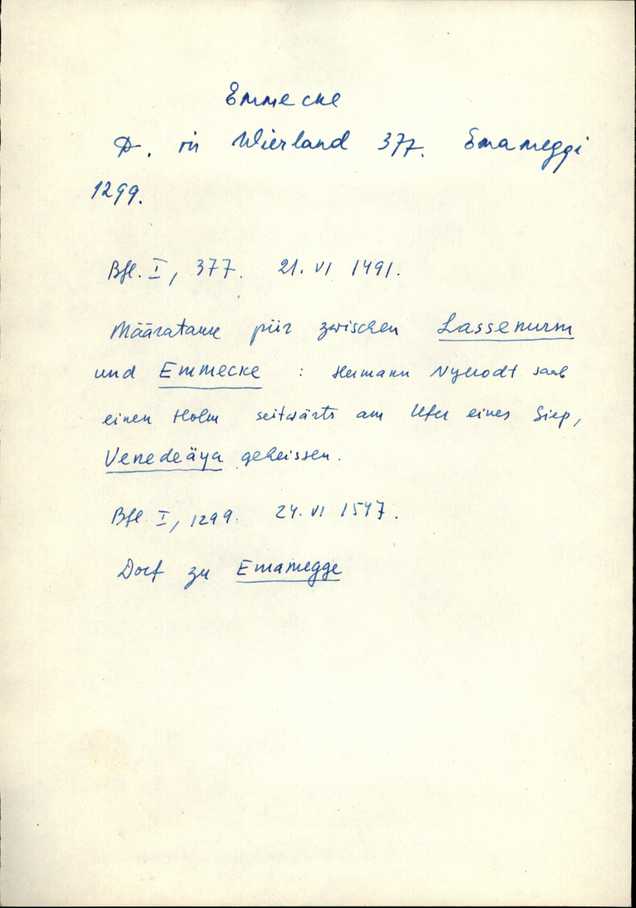 Emmecke
D. in Wierland 377. Emameggi
1299.
Bfl. I, 377. 21. VI 1491.
Määratakse piir zwischen Lassenurm
und Emmecke : Hermann Nyerodt saab
einen Holm seitwärts am Ufer eines Siep,
Venedeäya geheissen.
Bfl I, 1299. 24. VI 1547.
Dorf zu Emamegge